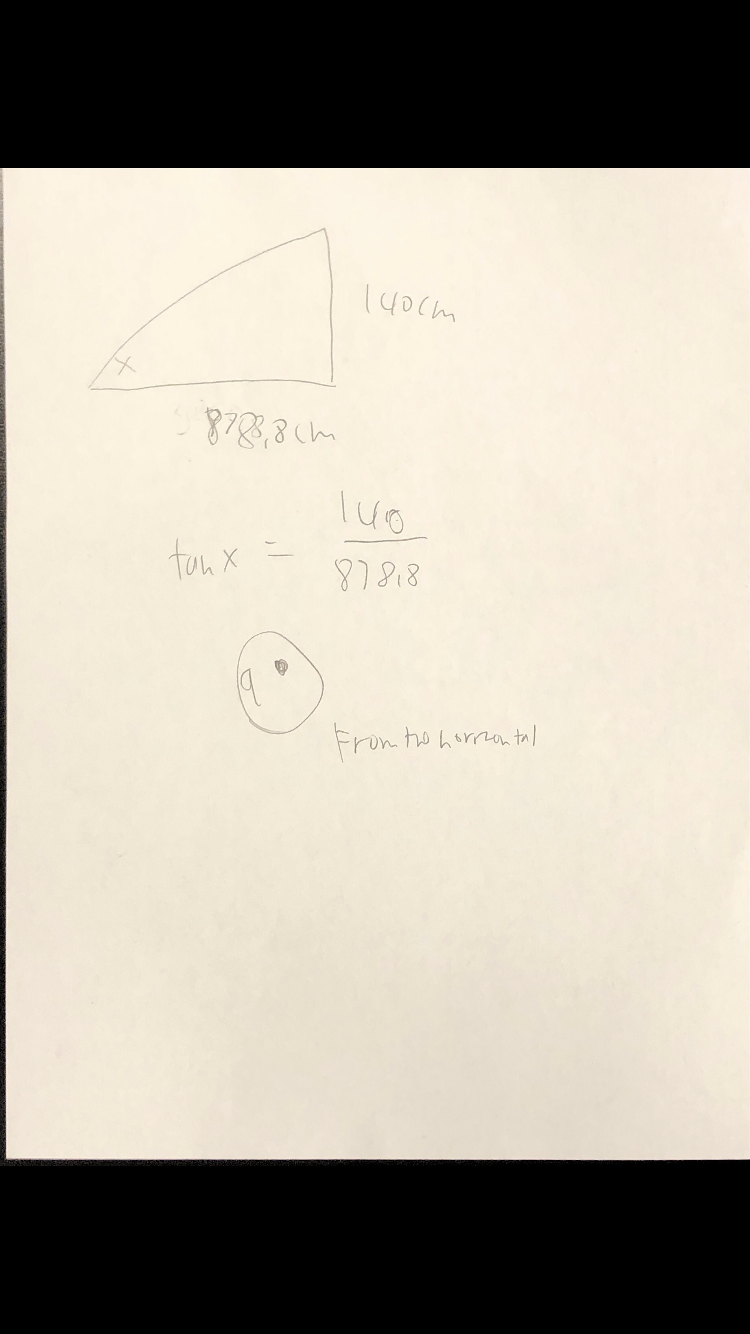 140cm
x
cm
tan x = 140
878.8
9°
From the horizontal